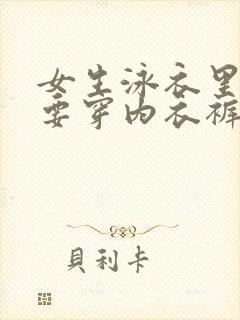 女生泳衣里
要穿内衣裤
貝利卡